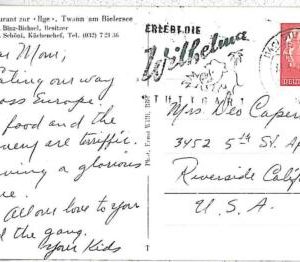 urant zur «Ilge». Twann am Bielersee
Binz-Bichsel, Besitzer
Schöni, Küchenchef, Tel. (032) 7 21 36
Mom,
ating our way
oss Europe!
food and the
nery are terrific.
aving a glorious
e.
All our love to you
d the gang.
Your Kids
ERLEBT DIE
Wilhelma
STUTTGART
Phot. Ernst
Mrs. Deo Caper
3452 5th St. Ap
Riverside Calif
U. S. A.